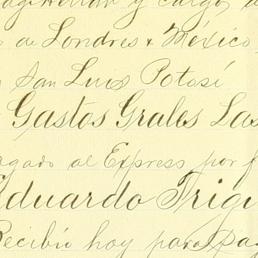 y cargo, a
de Londres & México
San Luis Potosí
Gastos Grales Las
agado al Express por f
Eduardo Trigu
Recibí hoy para pag